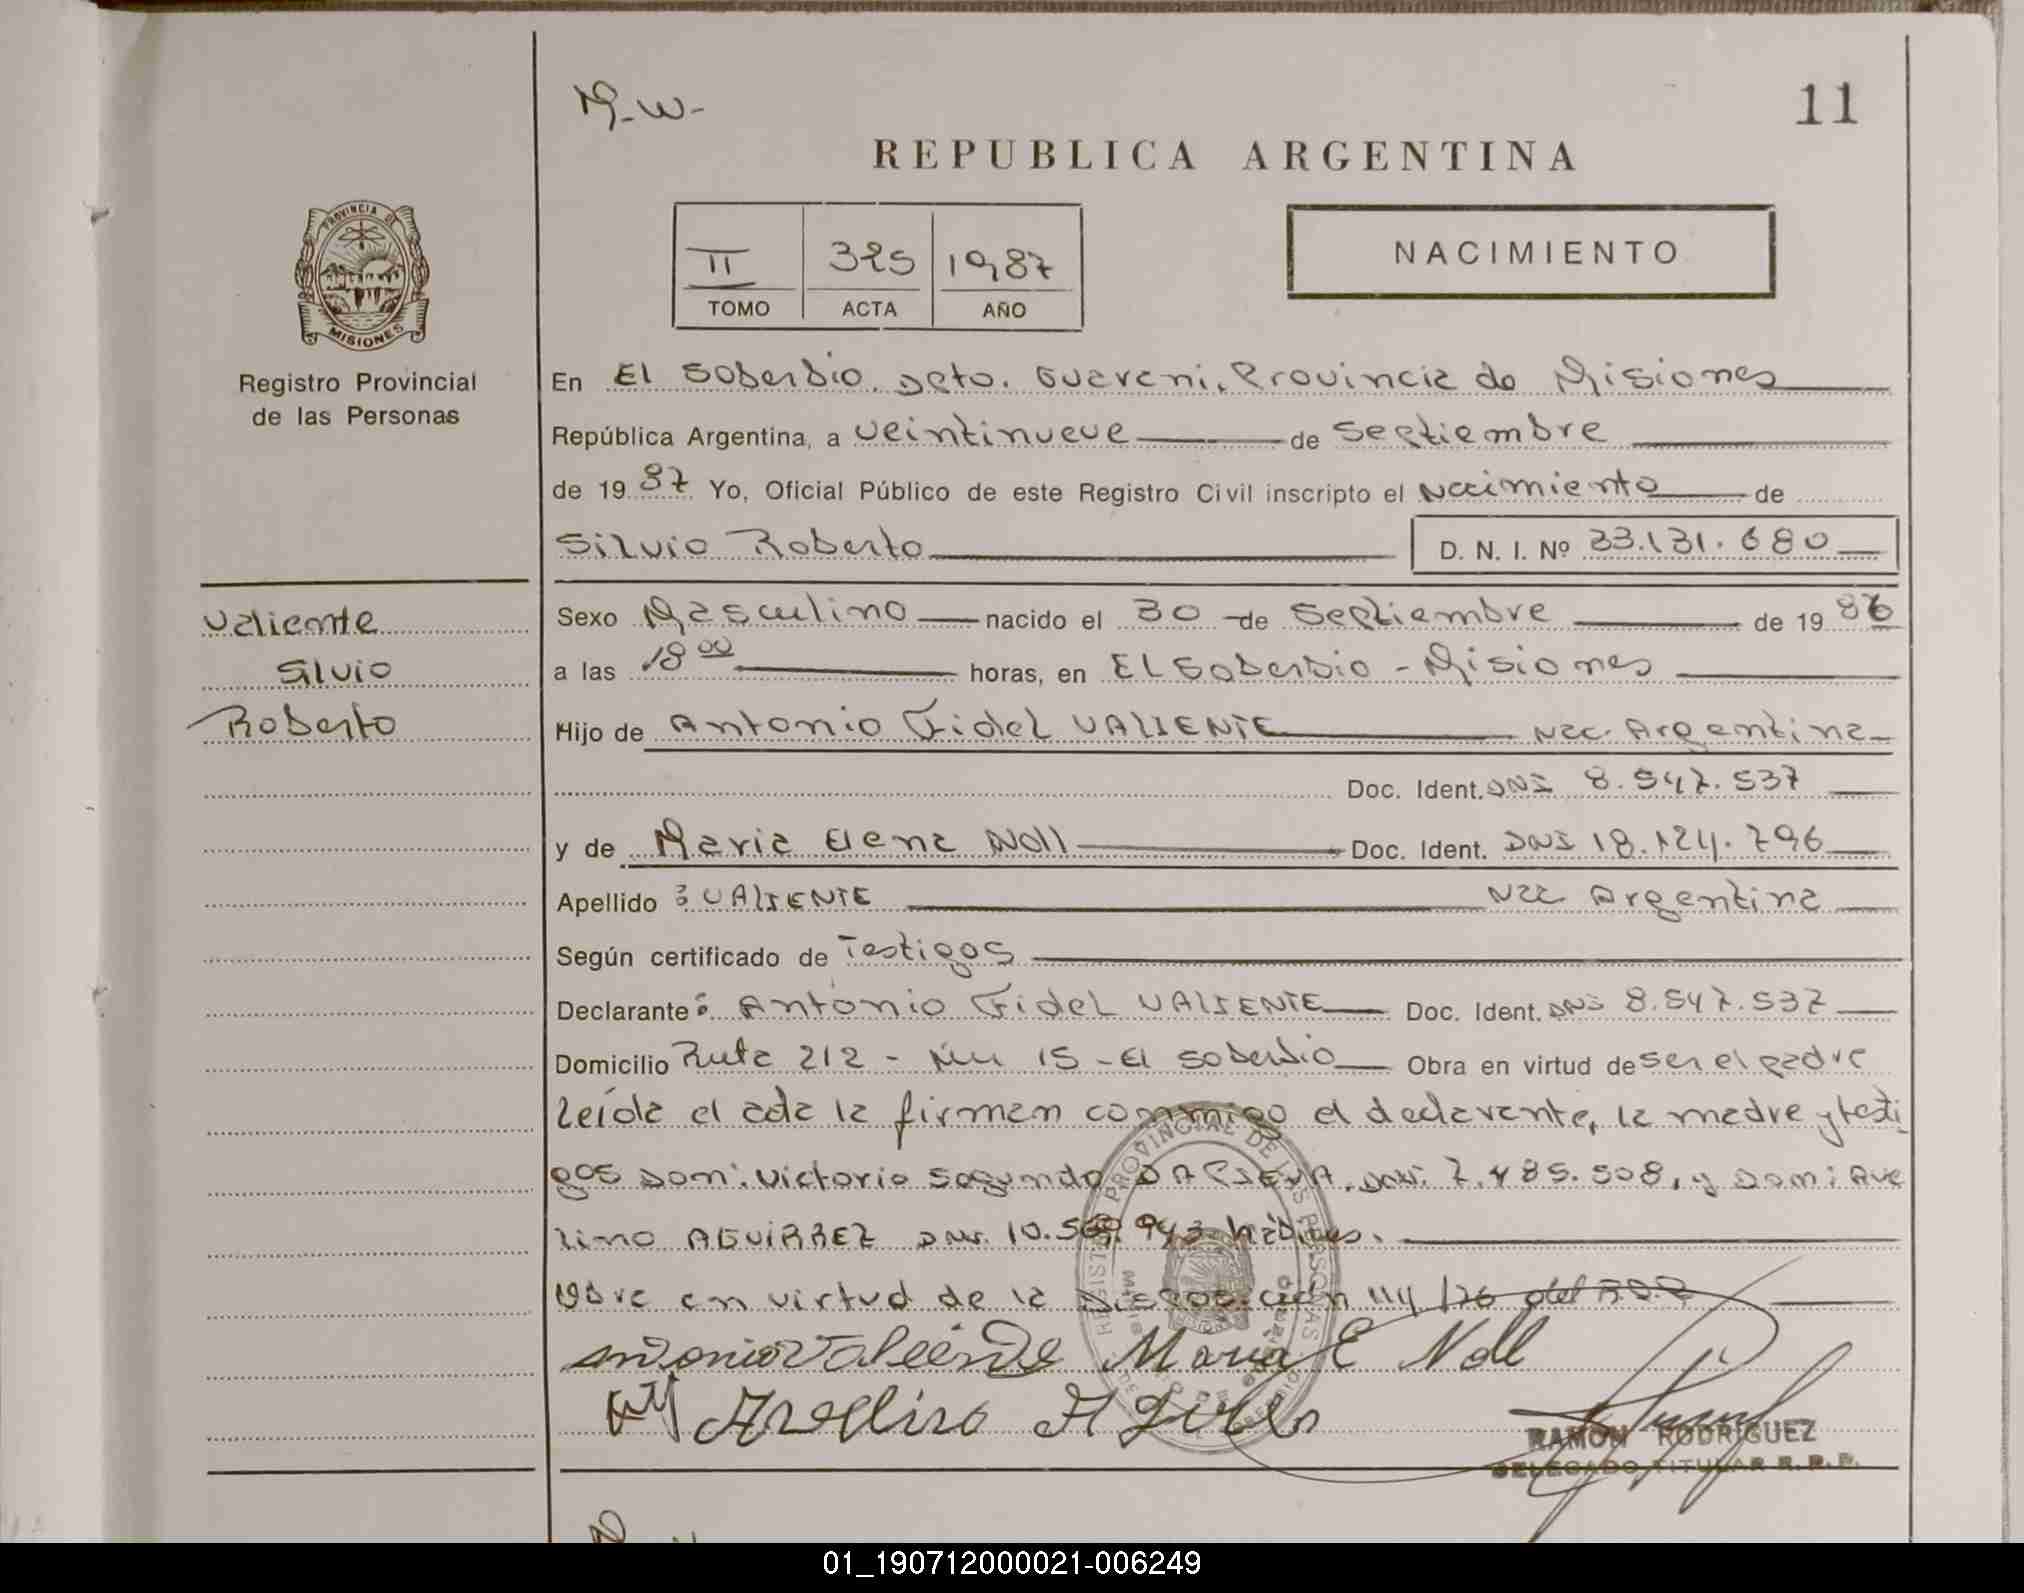 M.W-
11
REPUBLICA ARGENTINA
II 325 1987
TOMO ACTA AÑO
NACIMIENTO
PROVINCIA DE
MISIONES
Registro Provincial
de las Personas
En El Soberbio. Dpto. Guarani. Provincia de Misiones
República Argentina, a veintinueve de septiembre
de 1987 Yo, Oficial Público de este Registro Civil inscripto el Nacimiento de
Silvio Roberto D. N. I. Nº 33.131.680
Valiente
Silvio
Roberto
Sexo Masculino nacido el 30 de Septiembre de 1986
a las 18 00 horas, en El Soberbio - Misiones
Hijo de Antonio Fidel VALIENTE Nac. Argentina
Doc. Ident. DNI 8.547.537
y de Maria Elena Noll Doc. Ident. DNI 18.124.796
Apellido : VALIENTE Nac Argentina
Según certificado de Testigos
Declarante: Antonio Fidel VALIENTE Doc. Ident. DNI 8.547.537
Domicilio Ruta 212 - Km 15 - El Soberbio Obra en virtud de ser el padre
Leída el acta la firman conmigo el declarante, la madre y testi
gos Don: Victorio Segundo DNI. 7.485.508, y Don: Ave
lino AGUIRREZ DNI. 10.569.943 hábiles.
Obra en virtud de la Disposición 114/76 del R.P.P
Antonio Valiente Maria E Noll
Avellino
REGISTRO PROVINCIAL DE LAS PERSONAS
RAMON RODRIGUEZ
DELEGADO TITULAR R. P. P.
01_190712000021-006249